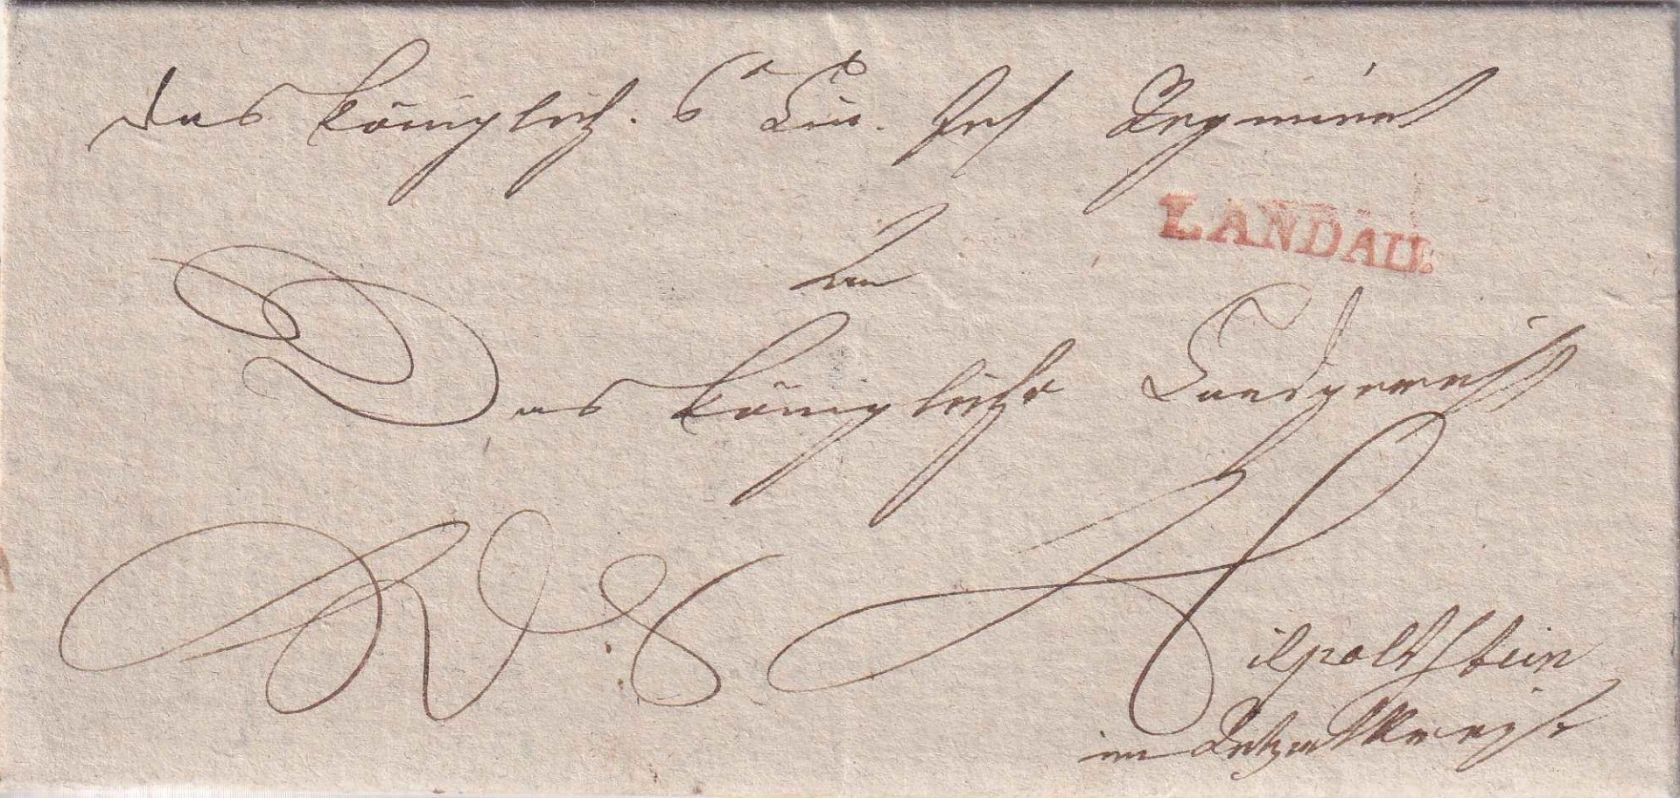 Das Königlich. 6te Lin. Inf. Regiment
LANDAU.
An
Das Königliche Landgericht
R. S. Hilpoltstein
im Rezatkreise